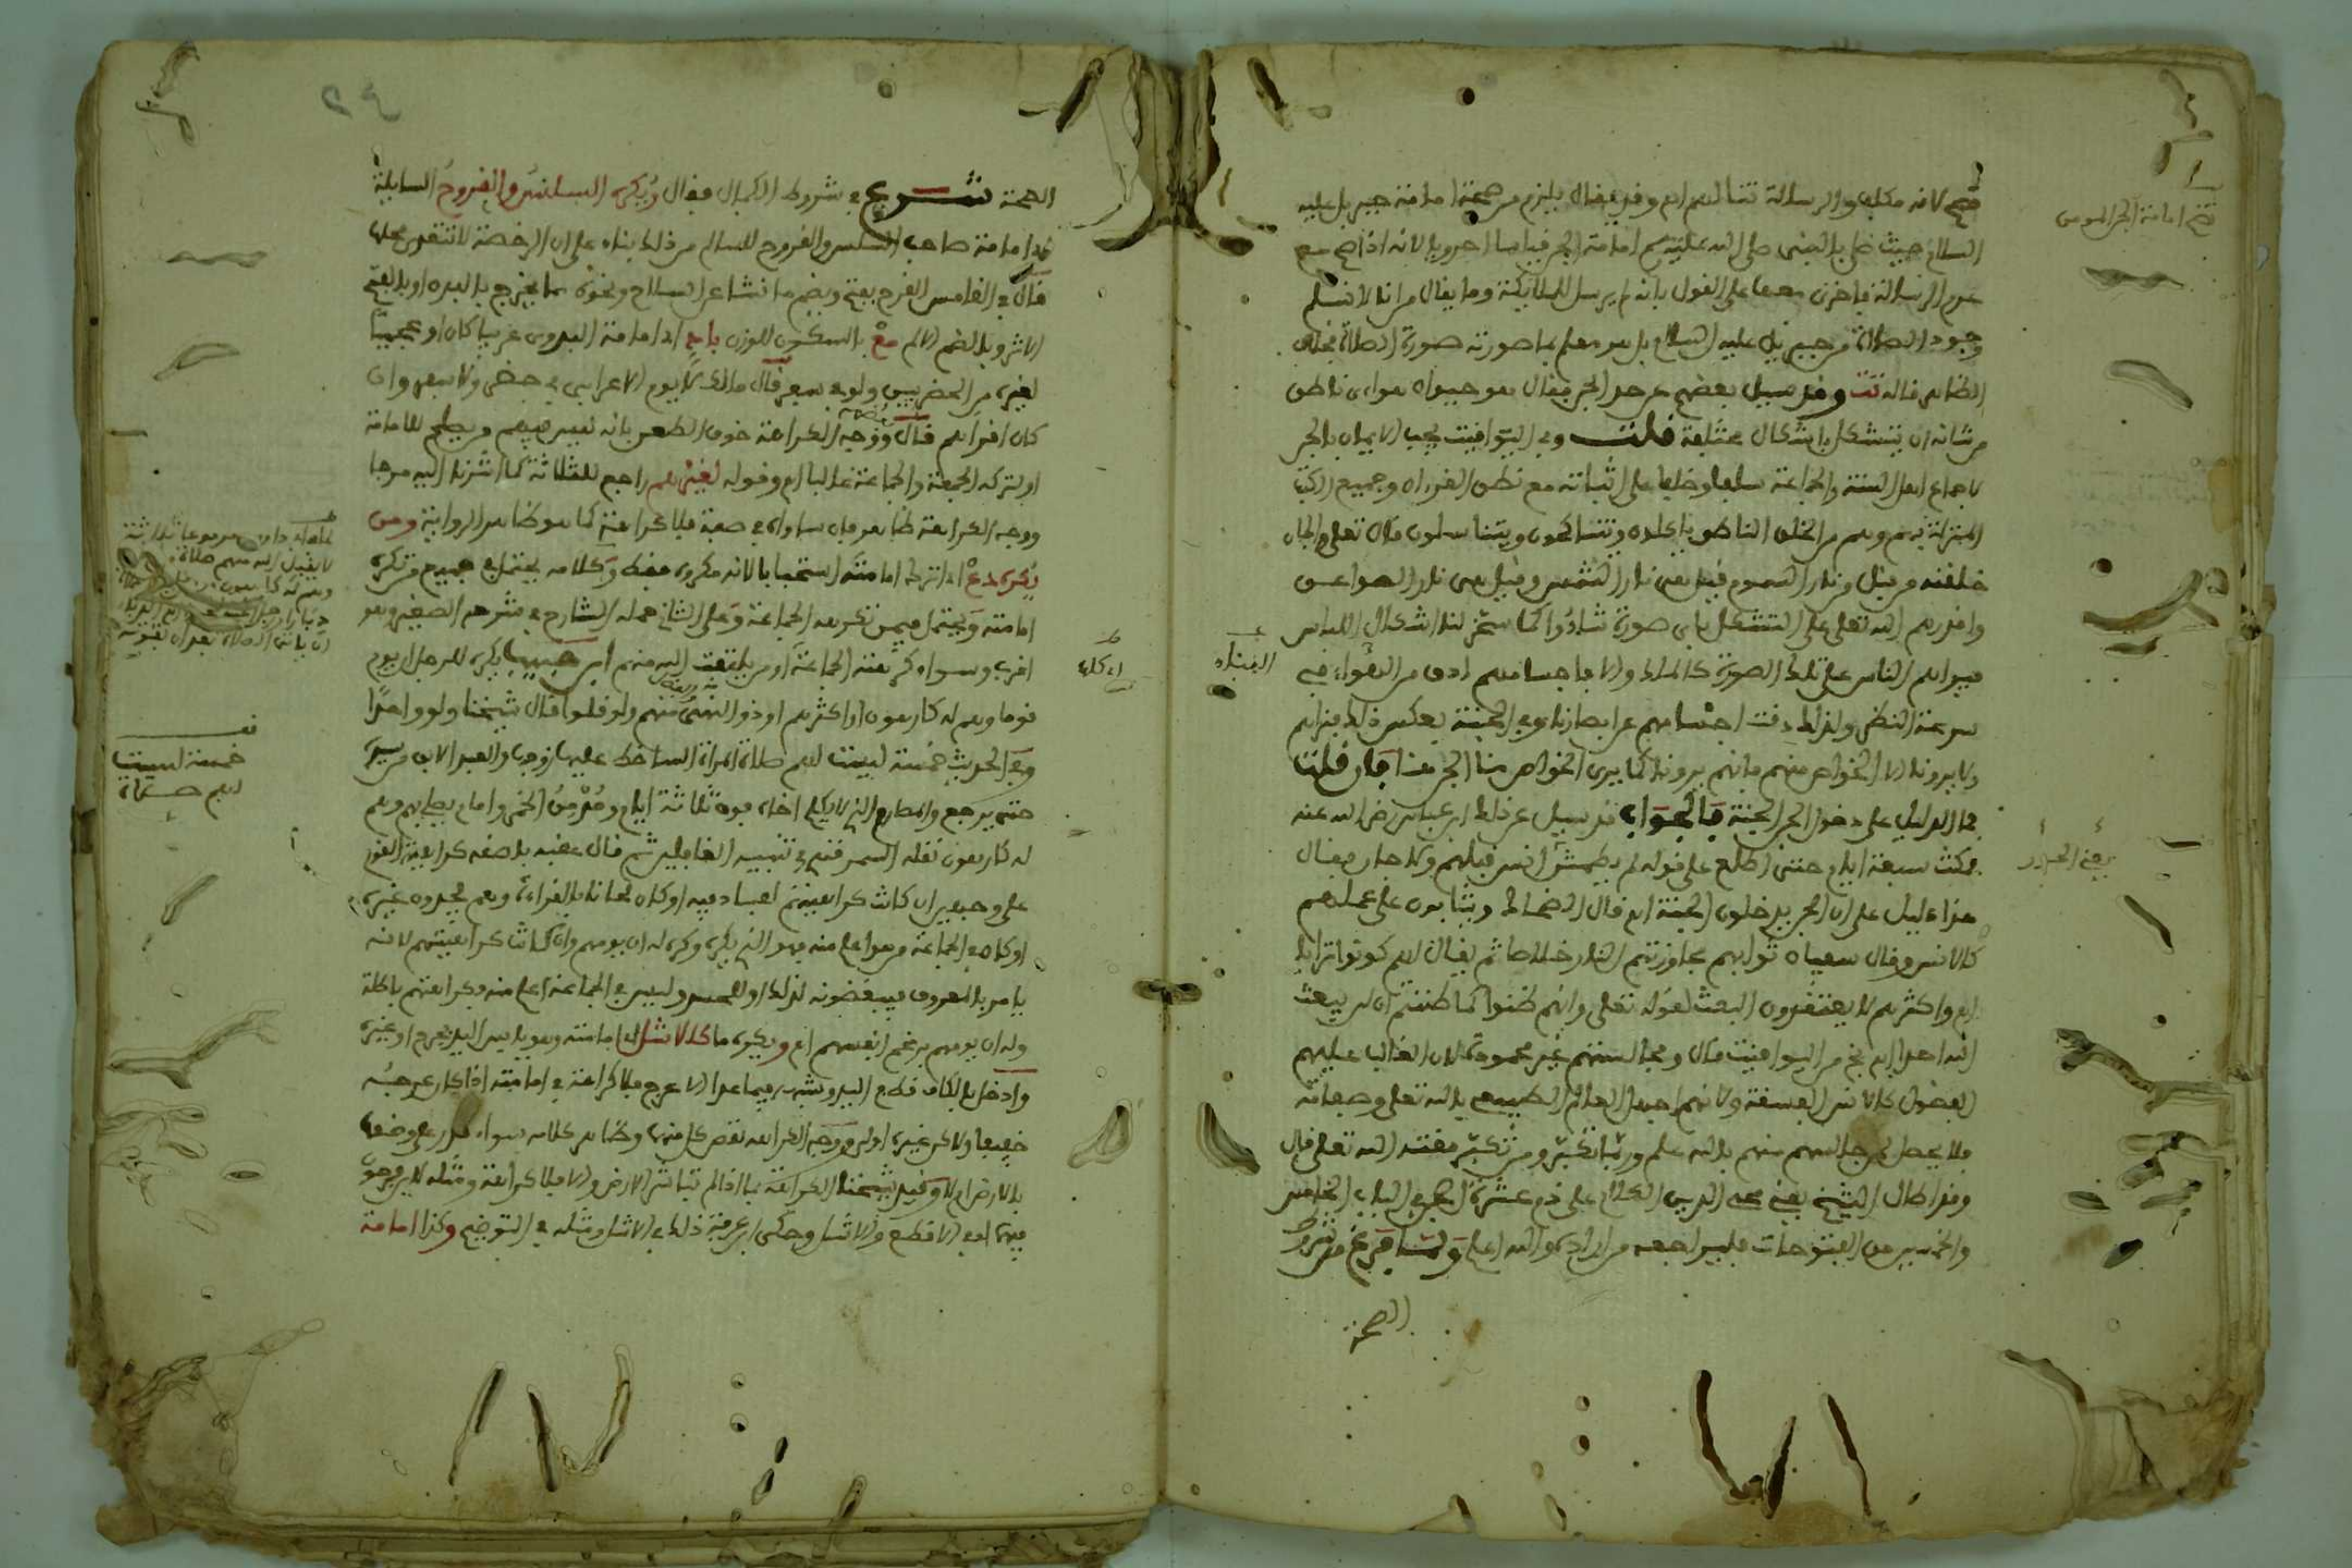 فتح لانه مكلف والرسالة تتنا لهم ام وقد يقال يلزم من صحة امامة جبريل عليه
السلام حيث صلى بالنبي صلى الله عليه وسلم امامة الجن قياسا احرويا لانه اذا صح مع
عدم الرسالة فاحرى معها على القول بانه لم يرسل للملائكة وما يقال من انا لا نسلم
وجود الصلاة من جبريل عليه السلام بل هو معلم بما صورته صورة الصلاة بخلاف
الظاهر قاله تت وقد سيل بعضهم عن حد الجن فقال هو حيوان هواءى ناطق
من شانه ان يتشكل باشكال مختلفة قلت وفي اليواقيت يجب الايمان بالجن
لاجماع اهل السنة والجماعة سلفا وخلفا على اثباته مع نطق القرءان وجميع الكتب
المنزلة بهم وهم من الخلق الناطق ياكلون ويتناكحون ويتناسلون قال تعلى والجان
خلقنه من قبل من نار السموم فقيل هى نار الشمس وقيل هى نار الصواعق
واقدرهم الله تعلى على التشكل باى صورة شاءوا كما سخر لنا اشكال اللباس
فيراهم الناس على تلك الصورة كالملك والا فاجسامهم ادق من الهواء فى
سرعة النظر ولذلك دقت اجسامهم عن ابصارنا وفي الجنة بعكس ذلك فنراهم
ولا يرونا الا الخواص منهم فانهم يرونا كما يرى الخواص منا الجن هنا فان قلت
فما الدليل على دخول الجن الجنة فالجواب قد سيل عن ذلك ابن عباس رضى الله عنه
فمكث سبعة ايام حتى اطلع على قوله لم يطمثهن انس قبلهم ولا جان فقال
هذا دليل على ان الجن يدخلون الجنة ام قال الضحاك ويثابون على عملهم
كالانس وقال سفيان ثوابهم مجاوزتهم النار خلاصا ثم يقال لهم كونوا ترابا
ام واكثرهم لا يعتقدون البعث لقوله تعلى وانهم ظنوا كما ظننتم ان لن يبعث
الله احدا ام من اليواقيت قال ومجالستهم غير محمودة لان الغالب عليهم
الفضول كالانس الفسقة ولانهم اجهل العالم الطبيعى بالله تعلى وصفاته
فلا يحصل لمجالسهم منهم بالله علم وربما تكبر ومن تكبر مقته الله تعلى قال
وقد اطال الشيخ يعنى محى الدين الكلام على ذم عشرة الجن في الباب الخامس
والخمسين من الفتوحات فليراجعه من اراده والله اعلم ولما فرغ من شروط
الصحة
يعنى الجن
الصحة شرع في شروط الكمال فقال ويكره السلس والقروح السايلة
اى امامة صاحب السلس والقروح للسالم من ذلك بناء على ان الرخصة لا تتعدى محلها
قال في القاموس القرح بفتح ويضم ما نشا عن السلاح ونحوه مما يخرج بالبدن او بالفتح
الاثر وبالضم الالم مع بالسكون للوزن باد اى امامة البدوى عربيا كان او عجميا
لغيره من الحضريين ولو في سفر قال مالك لا يوم الاعرابى في حضر ولا سفر وان
كان اقراهم قال ووجه الكراهة خوف الطعن بانه ليس فيهم من يصلح للامامة
او لتركه الجمعة والجماعة غالبا ام وقوله لغيرهم راجع للثلاثة كما اشرنا اليه مرجا
ووجه الكراهة ظاهر فان ساواه في صفة فلا كراهة كما هو ظاهر الرواية ومن
يكره دع اى اترك امامته استحبابا لانه مكروه فقط وكلامه يحتمل في جميع من تكره
امامته ويحتمل فيمن تكرهه الجماعة وعلى الثانى حمله الشارح في شرحه الصغير وهو
اقرب وسواء كرهته الجماعة او من يلتفت اليه منهم ابن حبيب يكره للرجل ان يوم
قوما وهم له كارهون او اكثرهم او ذو النهى منهم ولو قلوا قال شيخنا ولو واحدا
وفي الحديث خمسة ليست لهم صلاة المراة الساخط عليها زوجها والعبد الابق من سيده
حتى يرجع والمصارم الذى لا يكلم اخاه فوق ثلاثة ايام ومدمن الخمر وامام يصلى بهم وهم
له كارهون نقله السمرقندى في تنبيه الغافلين ثم قال عقبه بلصقه كراهية القوم
على وجهين ان كانت كراهيتهم لفساد فيه او كان لحانا بالقراءة وهم يجدون غيره
او كان في الجماعة من هو اعلم منه فهو الذى يكره وكره له ان يومهم وان كانت كراهيتهم لانه
يامر بالمعروف فيبغضونه لذلك او للحسد وليس في الجماعة اعلم منه فكراهتهم باطلة
وله ان يومهم برغم انفسهم ام ويكره ما كالاشل امامته وهو يابس اليد بجرح او غيره
وادخل بالكاف قطع اليد وشبهه فيما عدا الاعرج فلا كراهة في امامته اذا كان عرجه
خفيفا ولاكن غيره اولى ووجه الكراهة نقص كل منهما وظاهر كلامه سواء قدر على وضعها
بالارض ام لا وقيد شيخنا الكراهة بما اذا لم تباشر الارض والا فلا كراهة ومثله لابن فرحون
فيهما اى في الاقطع والاشل وحكى ابن عرفة ذلك في الاشل ومثله في التوضيح وكذا امامة
خمسة ليست
لهم صلاة